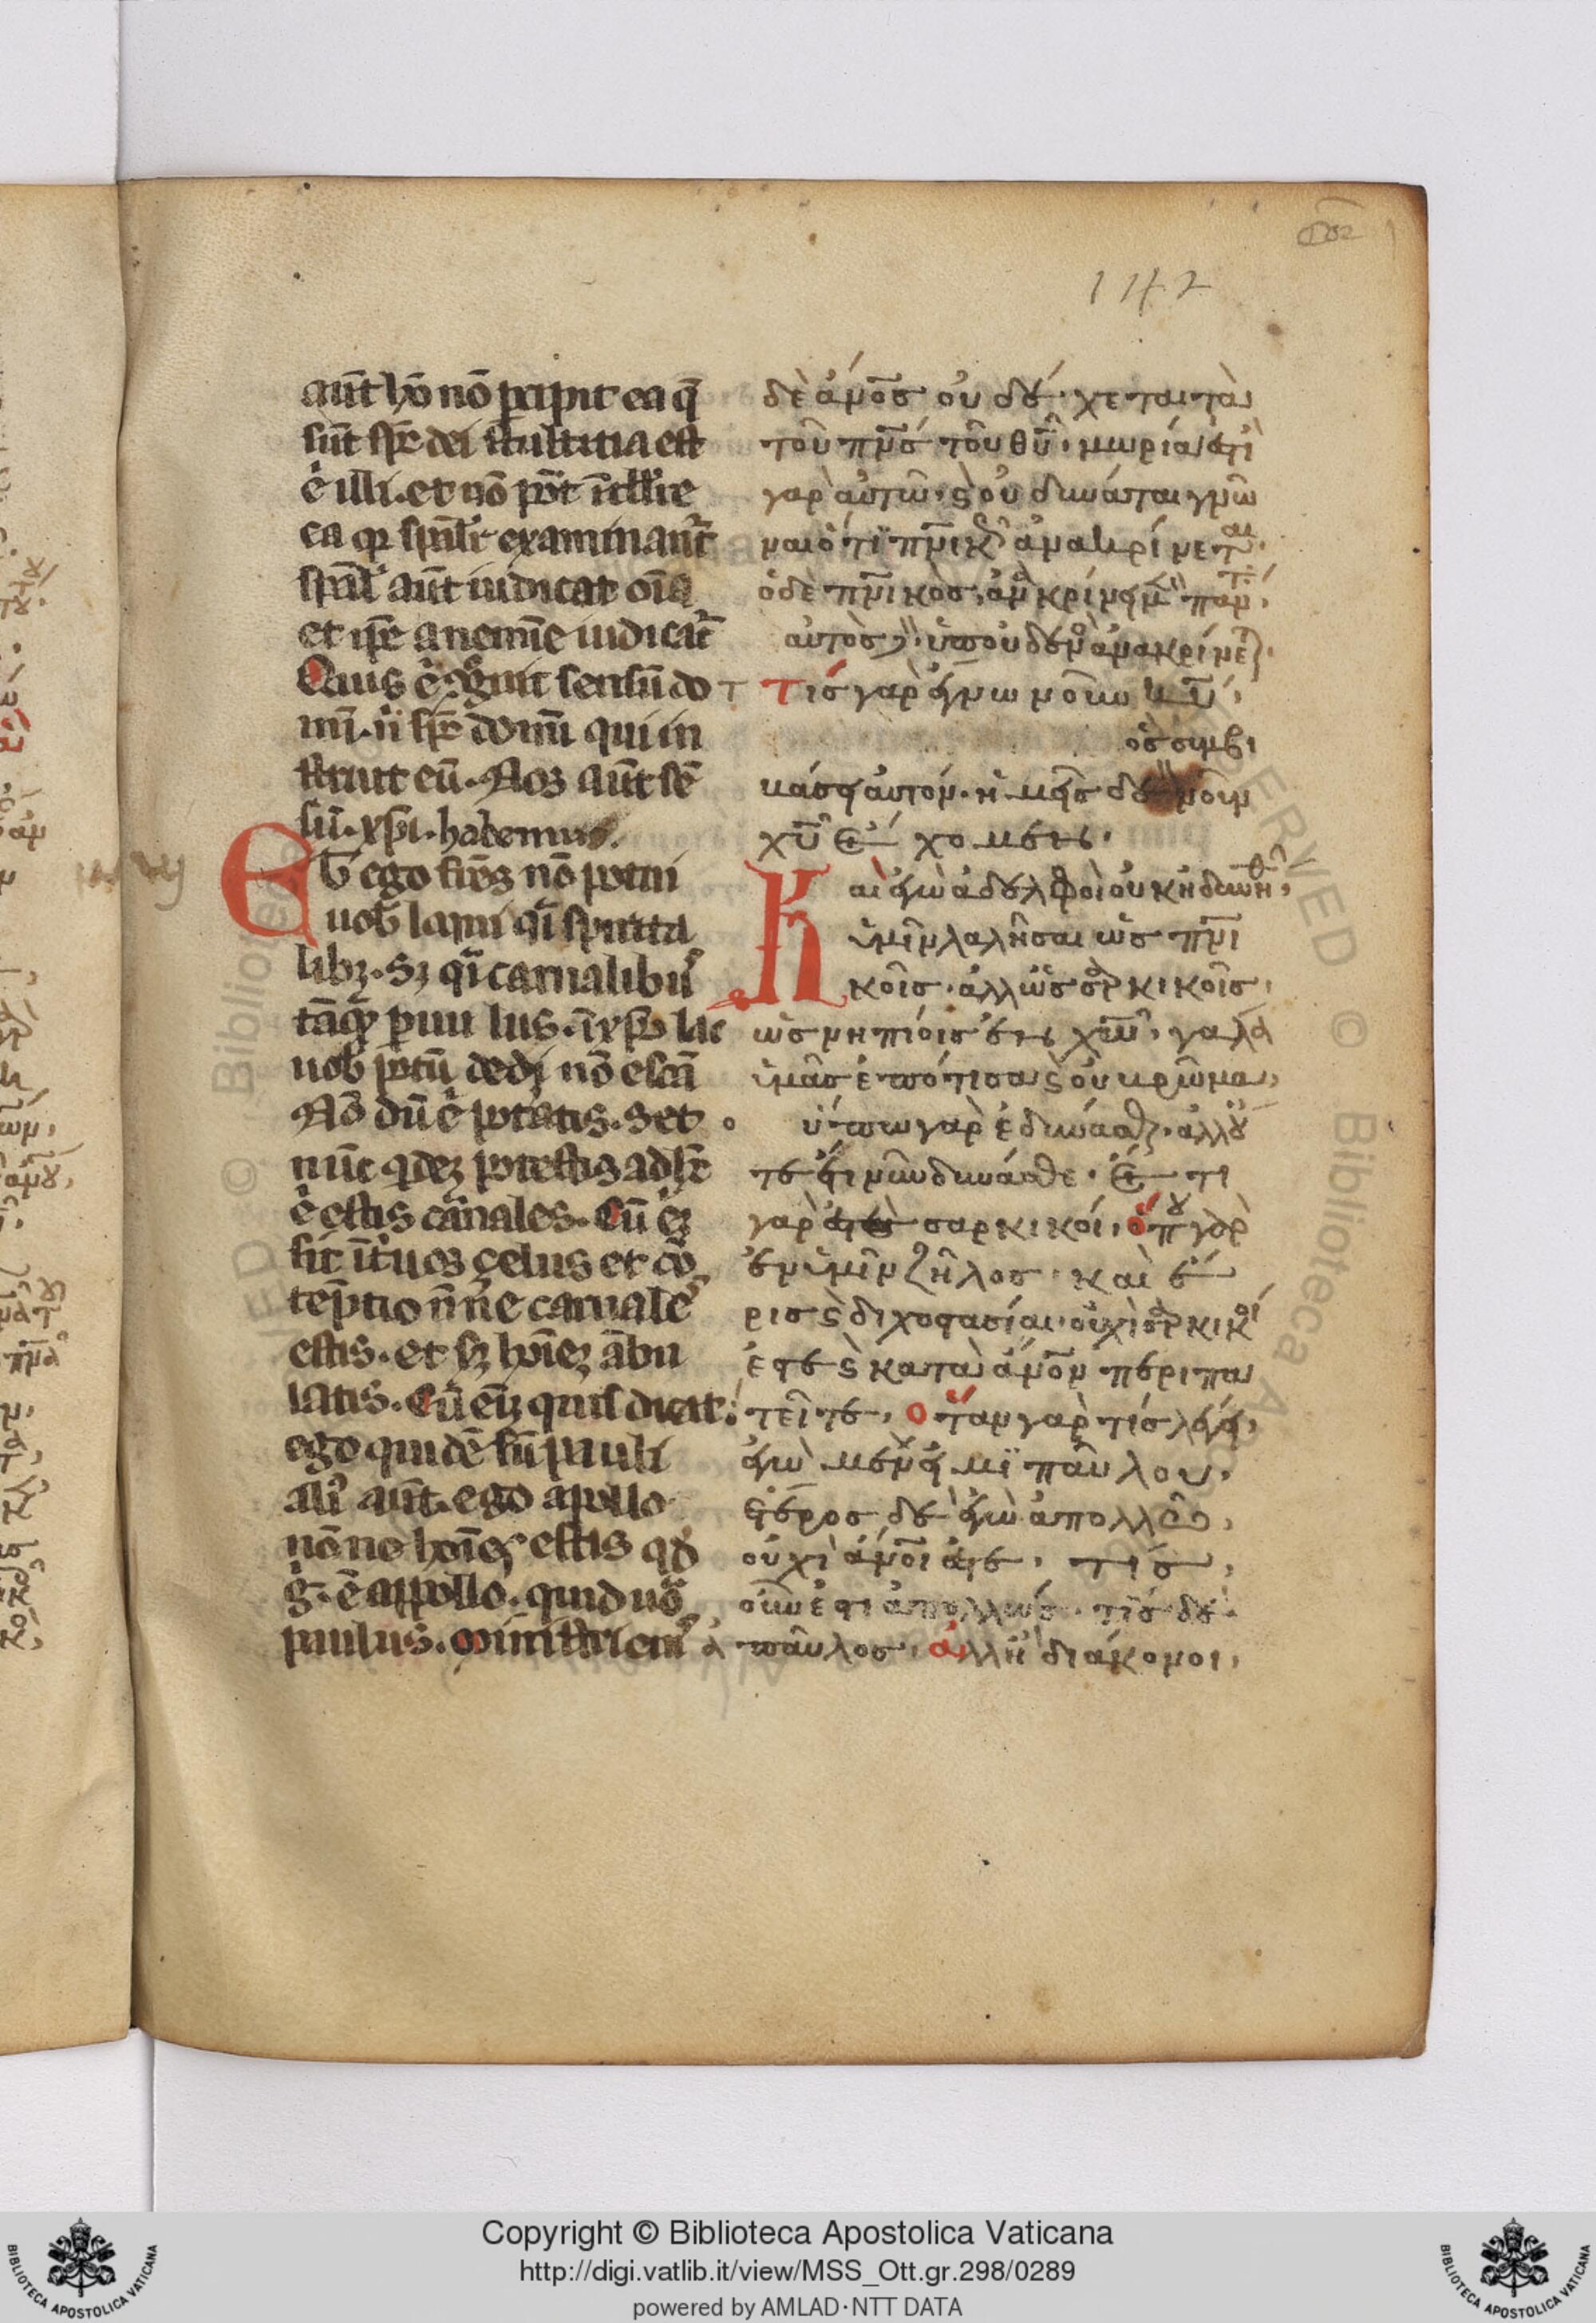 142
aūt hō nō p̄cipit ea q̄
sūt sp̄c dei stultitia est
ē illi. et nō pōt ītll'ire
ca qr sp̄ualr examinant
sp̄ual aūt iudicat oīa
et ip̄e a nemīe iudicat
Quis ē gnuit sensū do
mī. ł sp̄c domī qui in
struit eū. Nos aūt sē
sū. xp̄i. habemus.
Et ego fr̄es nō potui
uob loqui q̄i spirita
libꝫ. sꝫ q̄i carnalibus
tāq̄ paruulus. ī xp̄o lac
uob potū dedi nō escā
Nō dū ē potatis. Set
nūc qdeꝫ potestis adhc
ē estis carnales. Cū eꝫ
sit īt uos çelus et cō
tēptio nōne carnales
estis. et sꝫ hoīeꝫ ābu
latis. Cū eīꝫ quis dicit.
ego quidē sū pauli
ali' aūt. ego apollo
nōne hoīes estis qd
g. ē appollo. quid uo
paulus. ministri eius
δὲ ἄνο̅σ οὐ δέχεται τὰ
τοῦ πν̅σ τοῦ θυ̅· μωρία ἐστὶ
γὰρ αὐτῶ· ϛ οὐ δύναται γνῶ
ναι ὅτι πν̅ικῶς ἀνακρίνεται·
ὁ δὲ πν̅ικὸσ, ἀνακρίνει μὲν πάντα,
αὐτὸσ δὲ ὑπ οὐδενὸς ἀνακρίνεται.
τίσ γὰρ ἔγνω νοῦν κυ̅,
ὃσ συμβι
κάσει αὐτόν. ἡμεῖσ δὲ νοῦν
χυ̅ ἔχομεν.
Καὶ ἐγὼ ἀδελφοὶ οὐκ ἠδυνήθην,
ὑμῖν λαλῆσαι ὡσ πν̅ι
κοῖσ. ἀλλ ὡσ σαρκικοῖσ,
ὡσ νηπίοισ ἐν χω̅, γάλα
ὑμᾶσ ἐπότισα ϛ οὐ βρῶμα,
οὔπω γὰρ ἐδύνασθε. ἀλλ οὔ
τε ἔτι νῦν δύνασθε. ἔτι
γὰρ ἐστε σαρκικοί, ὅπου γὰρ
ἐν ὑμῖν ζῆλοσ, καὶ ἔ
ρισ ϛ διχοστασίαι. οὐχὶ σαρκικοί
ἐστε ϛ κατὰ ἄνο̅ν περιπα
τεῖτε, ὅταν γὰρ τίσ λέγει,
ἐγὼ μὲν εἰμϊ παύλου.
ἕτεροσ δὲ ἐγὼ ἀπολλῶ,
οὐχὶ ἄνο̅ι ἐστε, τίσ,
οὖν ἐστι ἀπολλώσ. τίσ δὲ
παῦλοσ, ἀλλ ἢ διάκονοι,
Copyright © Biblioteca Apostolica Vaticana
http://digi.vatlib.it/view/MSS_Ott.gr.298/0289
powered by AMLAD·NTT DATA